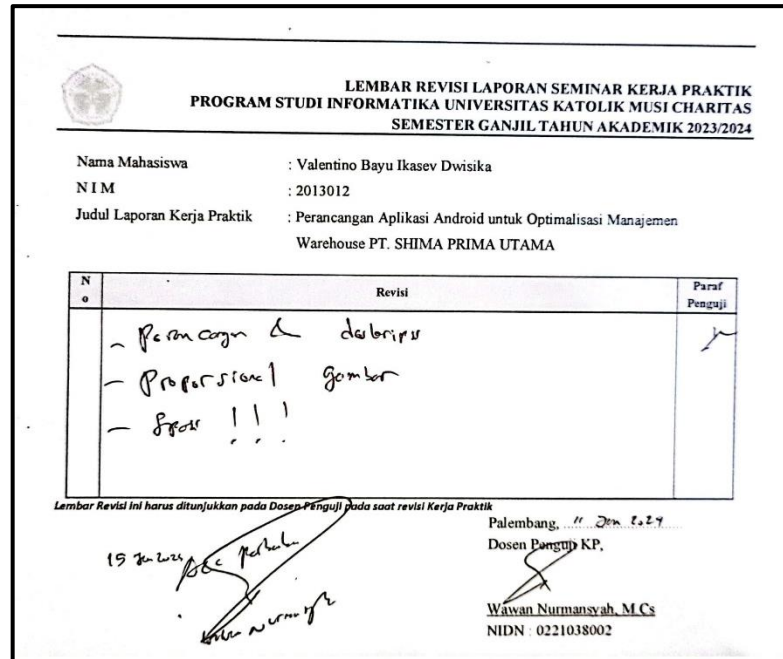 LEMBAR REVISI LAPORAN SEMINAR KERJA PRAKTIK
PROGRAM STUDI INFORMATIKA UNIVERSITAS KATOLIK MUSI CHARITAS
SEMESTER GANJIL TAHUN AKADEMIK 2023/2024
Nama Mahasiswa : Valentino Bayu Ikasev Dwisika
N I M : 2013012
Judul Laporan Kerja Praktik : Perancangan Aplikasi Android untuk Optimalisasi Manajemen
Warehouse PT. SHIMA PRIMA UTAMA
No Revisi Paraf Penguji
- &
- Proporsional gambar
- !!!
Lembar Revisi ini harus ditunjukkan pada Dosen Penguji pada saat revisi Kerja Praktik
Palembang, 11 Jan 2024
Dosen Penguji KP,
15 Jan 2024 ACC
Wawan Nurmansyah, M.Cs
NIDN : 0221038002